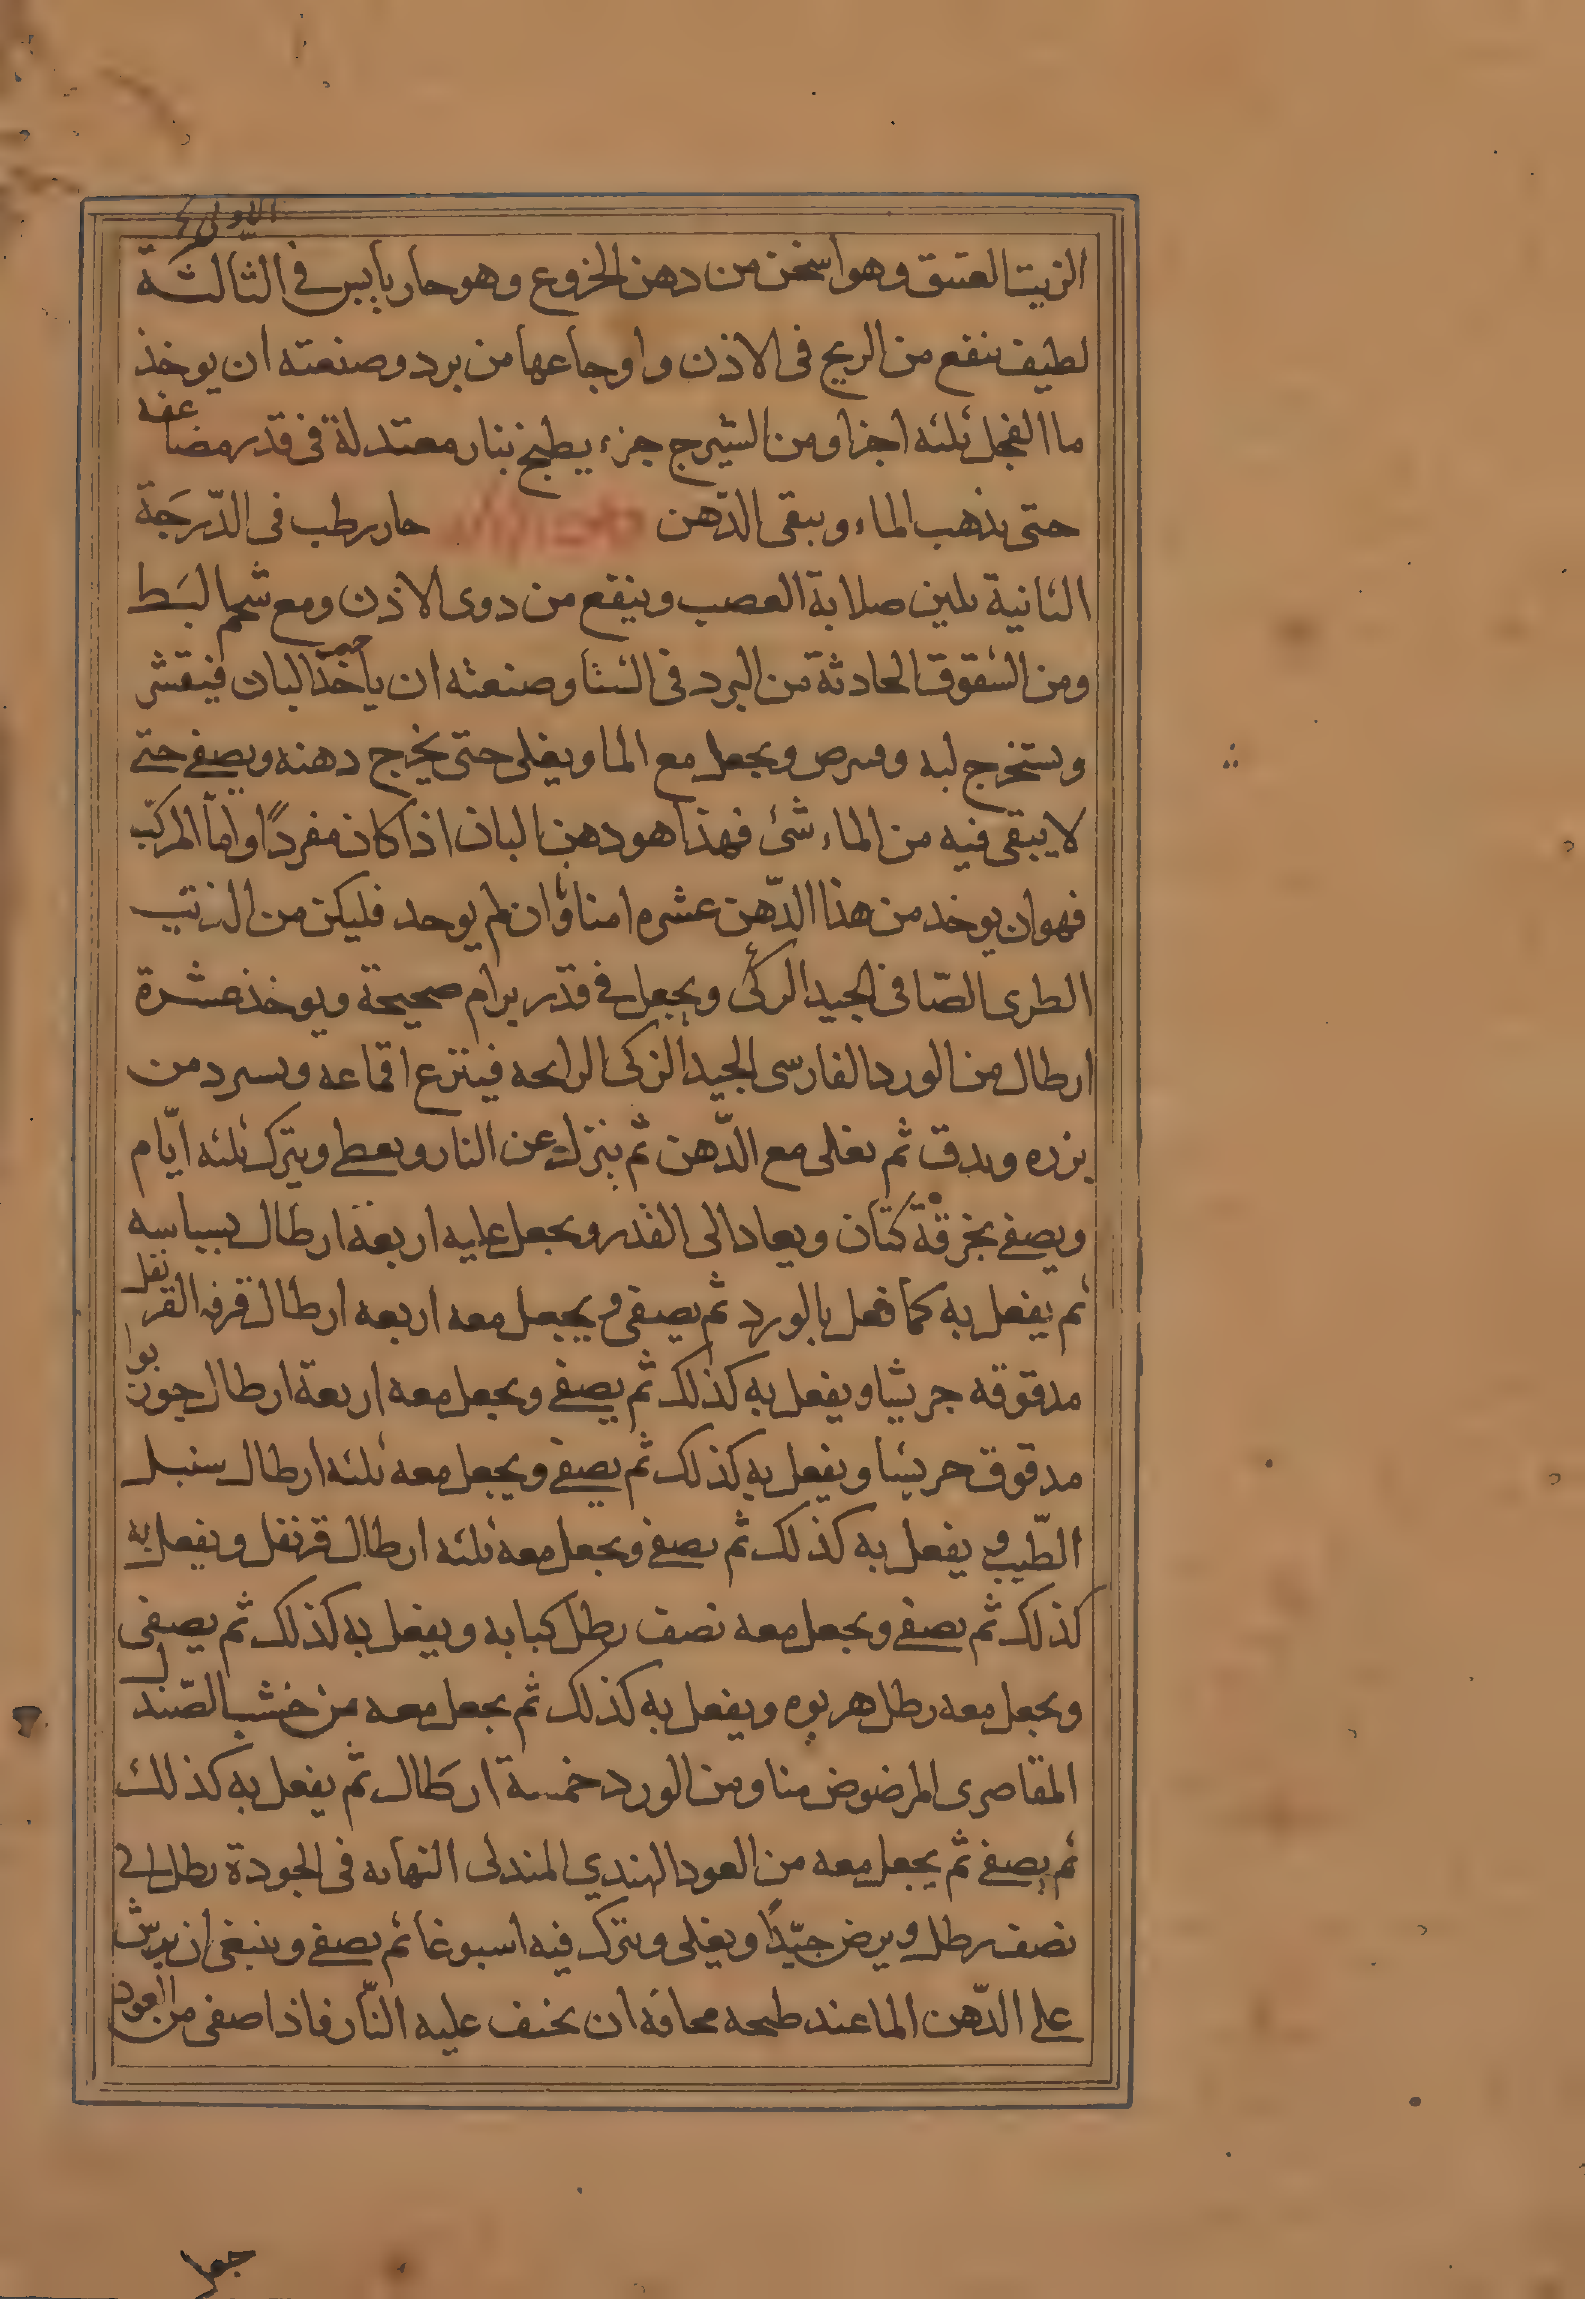 الاولى
الزيت العتيق وهو اسخن من دهن الخروع وهو حار يابس في الثالثة
لطيف ينفع من الريح في الاذن واوجاعها من برد وصنعته ان يوخذ
ما الفجل ثلثه اجزا ومن الشيرج جزء يطبخ بنار معتدلة في قدر مضاعفه
حتى يذهب الماء ويبقى الدّهن حار رطب في الدّرجَة
الثانية يلين صلابة العصب وينفع من دوى الاذن ومع شحم البَط
ومن الشقوق الحادثة من البرد في الشتا وصنعته ان ياخذ حب البان فيقشر
ويستخرج لبه ويرض ويجعل مع الما ويغلى حتى يخرج دهنه ويصفى حتى
لا يبقى فيه من الماء شئ فهذا هو دهن البان اذا كان مفردًا واما المركّب
فهو ان يوخد من هذا الدّهن عشره امنا وان لم يوجد فليكن من الزيت
الطرى الصّافى الجيد الزكى ويجعل في قدر برام صحيحة ويوخذ عشرة
ارطال من الورد الفارسى الجيد الزكى الرايحه فينزع اقماعه ويسرد من
بزره ويدق ثم يغلى مع الدّهن ثم ينزل عن النار ويغطى ويترك ثلثه ايّام
ويصفى بخرقة كتان ويعاد الى القدر ويجعل عليه اربعة ارطال بسباسه
ثم يفعل به كما فعل بالورد ثم يصفى ويجعل معه اربعه ارطال قرفه القرنفل
مدقوقه جريشا ويفعل به كذلك ثم يصفى ويجعل معه اربعة ارطال جوز بوا
مدقوق جريشا ويفعل به كذلك ثم يصفى ويجعل معه ثلثه ارطال سنبل
الطّيب ويفعل به كذلك ثم يصفى ويجعل معه ثلثه ارطال قرنفل ويفعل به
كذلك ثم يصفى ويجعل معه نصف رطل كبابه ويفعل به كذلك ثم يصفى
ويجعل معه رطل هربوه ويفعل به كذلك ثم يجعل معه من خشب الصّندل
المقاصرى المرضوض منا ومن الورد خمسة ارطال ثم يفعل به كذلك
ثم يصفى ثم يجعل معه من العود الهندي المندلى النهايه في الجودة رطل الى
نصف رطل ويرض جيّدًا ويغلى ويترك فيه اسبوعًا ثم يصفى وينبغى ان يرش
على الدّهن الما عند طبخه مخافه ان يحنف عليه النّار فاذا صفى من العود